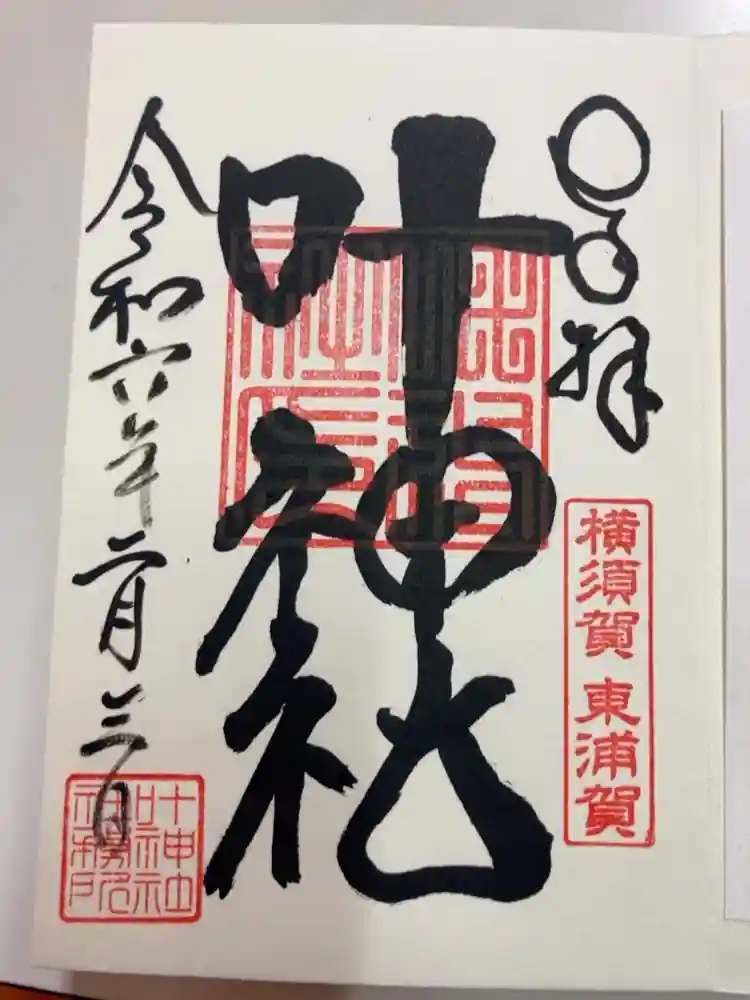 奉拝
横須賀 東浦賀
叶神社
令和六年二月三日
叶神社
社務所